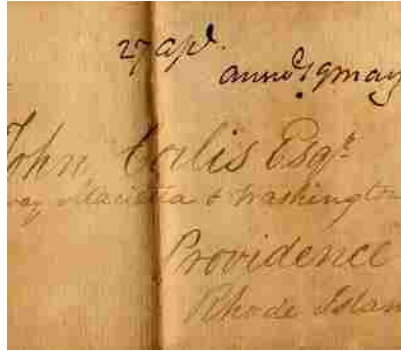 27 apl.
ansd 19 may
John Corlis Esqr.
way Marietta & Washington
Providence
Rhode Islan